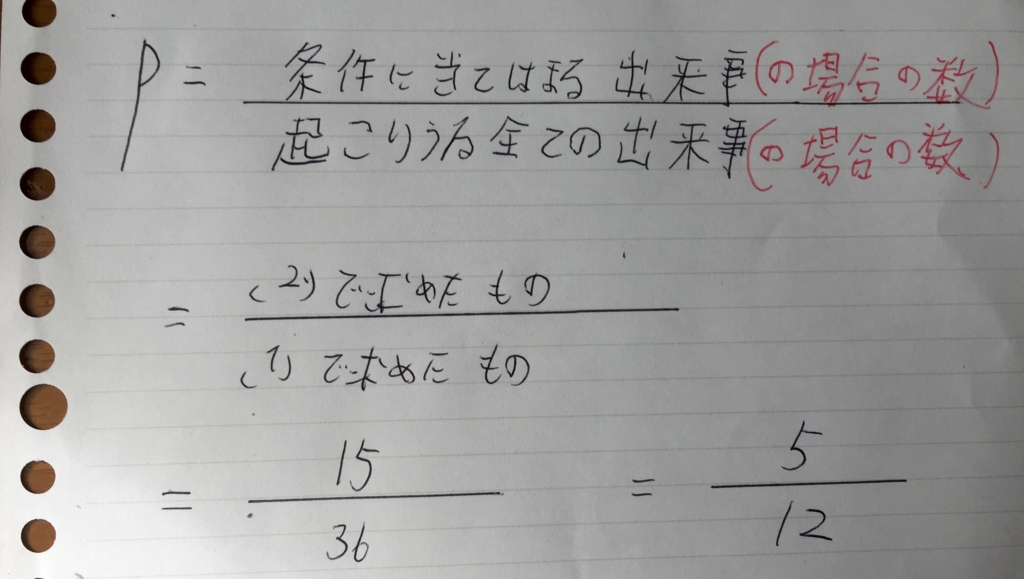 P = 条件に当てはまる出来事(の場合の数)
起こりうる全ての出来事(の場合の数)
= (2)で求めたもの
(1)で求めたもの
= 15 = 5
36 12